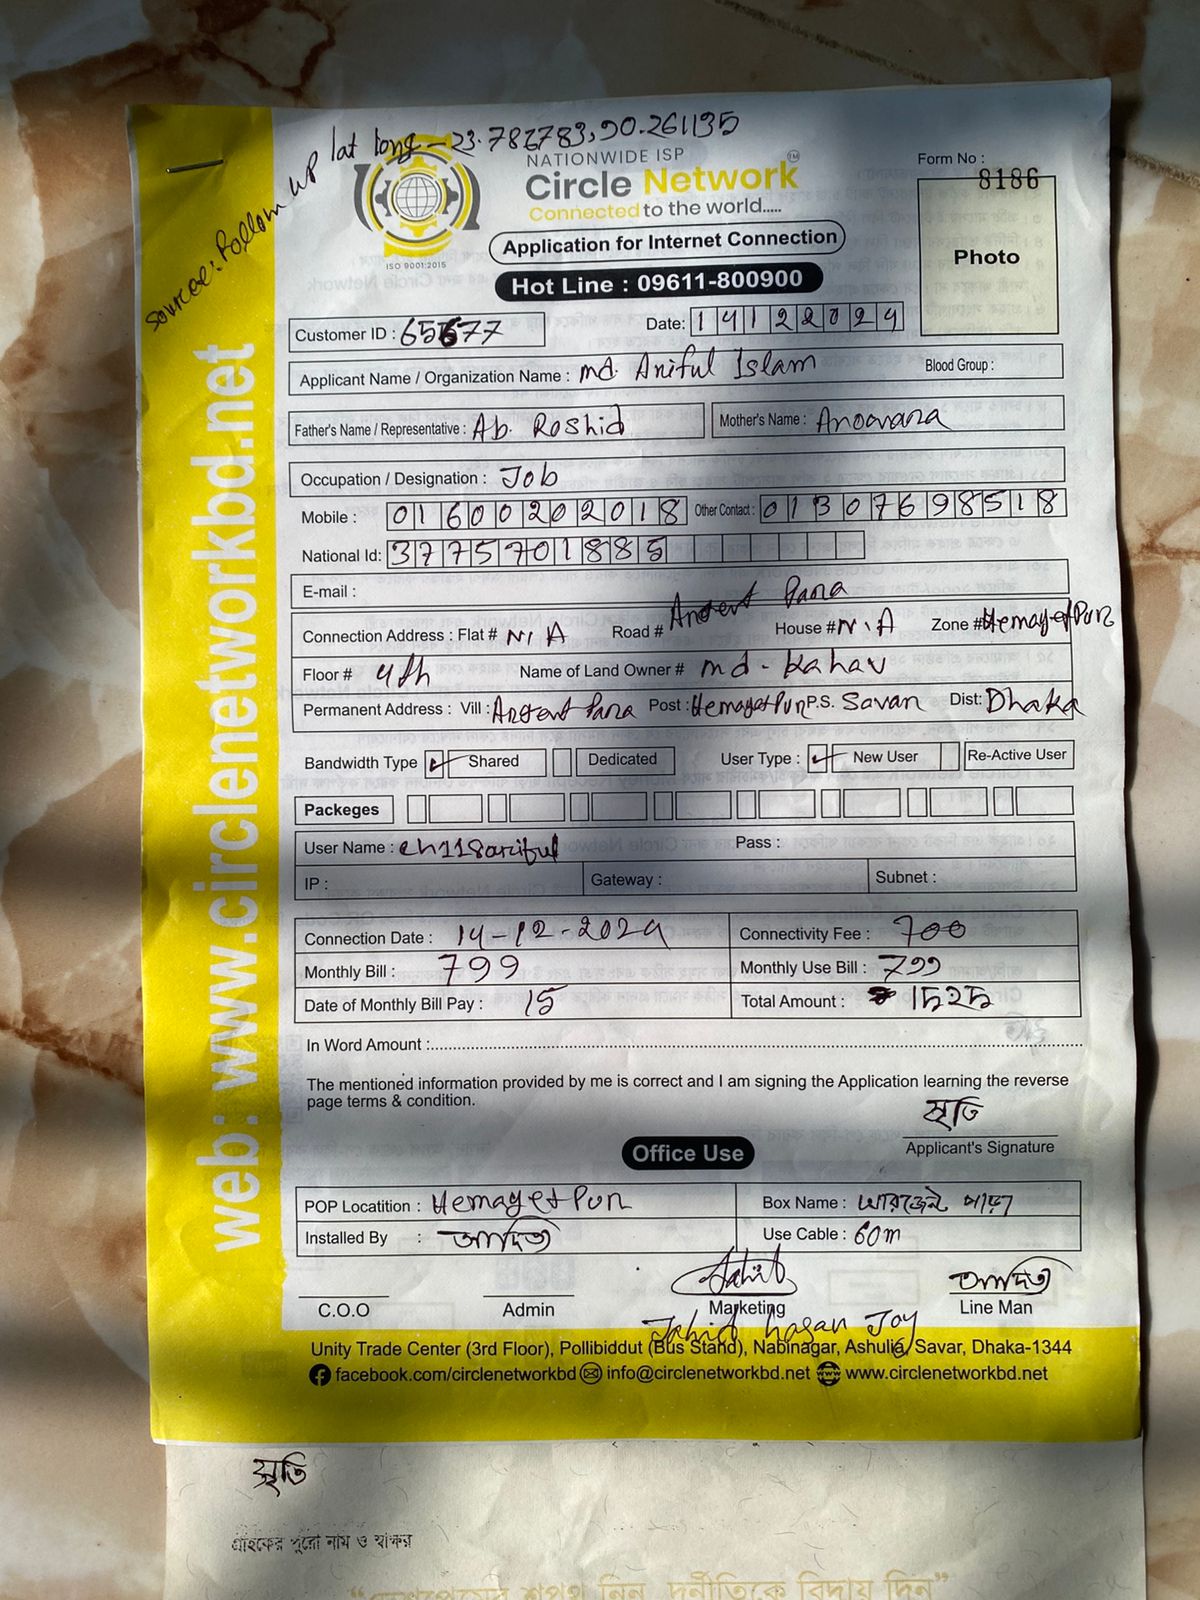 lat long - 23.786783, 90.261135
Source: Follow up
NATIONWIDE ISP
Circle Network TM
Connected to the world.....
ISO 9001:2015
Form No :
8186
Photo
Application for Internet Connection
Hot Line : 09611-800900
Customer ID : 65677
Date: 14122024
Applicant Name / Organization Name : md. Ariful Islam Blood Group :
Father's Name / Representative : Ab. Roshid Mother's Name : Anowara
Occupation / Designation : Job
Mobile : 01600202018 Other Contact : 01307698518
National Id: 3775701885
E-mail :
Connection Address : Flat # N/A Road # Para House # N.A Zone # HemayetPur
Floor # 4th Name of Land Owner # md -
Permanent Address : Vill : Para Post : HemayetPur P.S. Savar Dist: Dhaka
Bandwidth Type Shared Dedicated User Type : New User Re-Active User
Packeges
User Name : ch118ariful Pass :
IP : Gateway : Subnet :
Connection Date : 14-12-2024 Connectivity Fee : 700
Monthly Bill : 799 Monthly Use Bill : 799
Date of Monthly Bill Pay : 15 Total Amount : 1525
In Word Amount :
The mentioned information provided by me is correct and I am signing the Application learning the reverse
page terms & condition.
স্মৃতি
Applicant's Signature
Office Use
POP Locatition : HemayetPur Box Name : পাড়া
Installed By : Use Cable : 60m
C.O.O Admin Marketing Line Man
Jahid hasan Joy
Unity Trade Center (3rd Floor), Pollibiddut (Bus Stand), Nabinagar, Ashulia, Savar, Dhaka-1344
facebook.com/circlenetworkbd info@circlenetworkbd.net www.circlenetworkbd.net
web: www.circlenetworkbd.net
স্মৃতি
গ্রাহকের পুরো নাম ও স্বাক্ষর
শপথ নিন, দুর্নীতিকে বিদায় দিন”